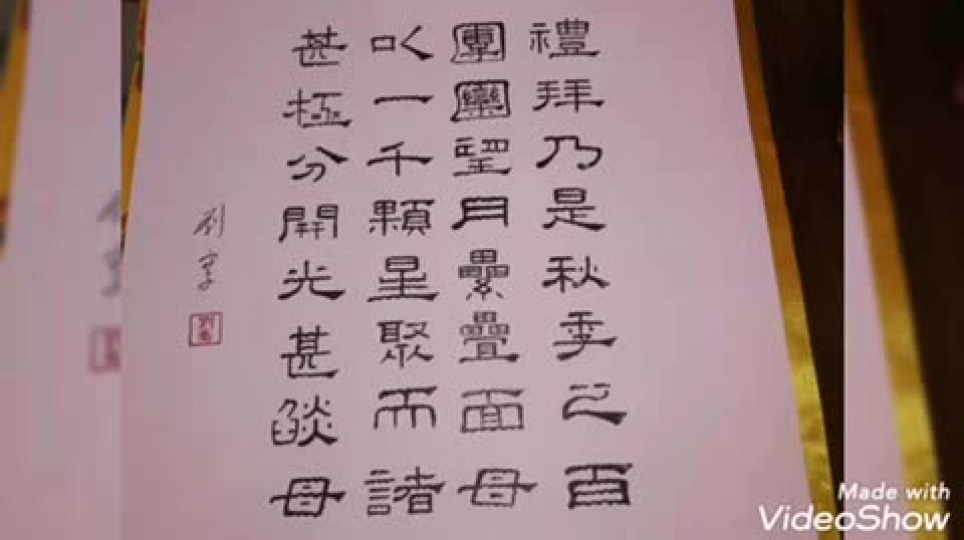 禮拜乃是秋季之百
團圞望月纍疊面母
以一千顆星聚而諸
甚極分開光甚燄母
刘
Made with
VideoShow